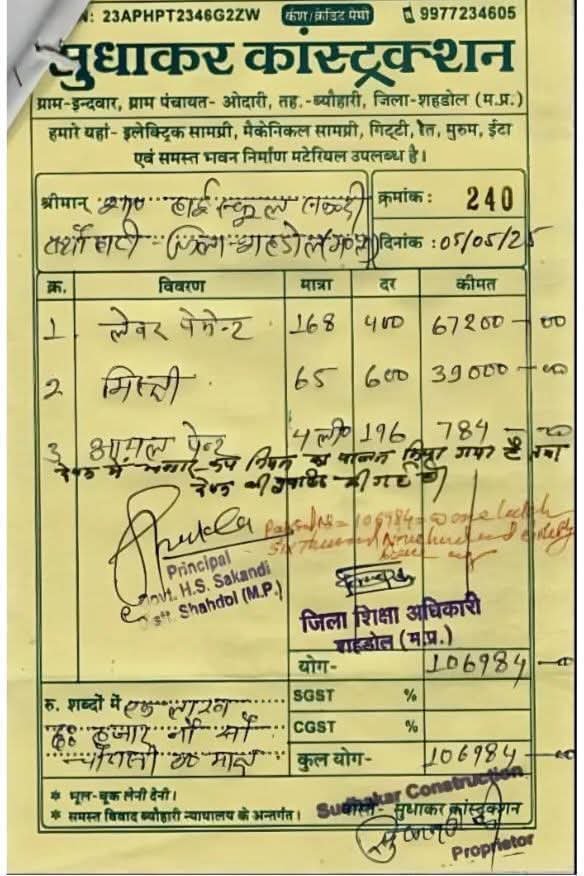 N: 23APHPT2346G2ZW कैश/क्रेडिट मेमो 9977234605
सुधाकर कांस्ट्रक्शन
ग्राम-इन्दवार, ग्राम पंचायत- ओदारी, तह.-ब्यौहारी, जिला-शहडोल (म.प्र.)
हमारे यहां- इलेक्ट्रिक सामग्री, मैकेनिकल सामग्री, गिट्टी, रेत, मुरुम, ईटा
एवं समस्त भवन निर्माण मटेरियल उपलब्ध है।
श्रीमान् हाई स्कूल सकन्दी क्रमांक: 240
जिला-शहडोल दिनांक : 05/05/25
क्र. विवरण मात्रा दर कीमत
1 लेवर पेमेन्ट 168 400 67200-00
2 मिस्त्री 65 600 39000-00
3 आयल पेन्ट 4 ली० 196 784
नियम का पालन किया गया है तथा
की गई है
Passed Rs = 106984 = 00 one lakh
Six thousand Nine hundred eighty
Principal
Govt. H.S. Sakandi
Distt. Shahdol (M.P.)
जिला शिक्षा अधिकारी
शहडोल (म.प्र.)
योग- 106984-00
रु. शब्दों में एक लाख SGST %
छः हजार नौ सौ CGST %
चौरासी रु० मात्र कुल योग- 106984-00
* भूल-चूक लेनी देनी।
* समस्त विवाद ब्यौहारी न्यायालय के अन्तर्गत।
Sudhakar Construction
वास्ते- सुधाकर कांस्ट्रक्शन
Proprietor